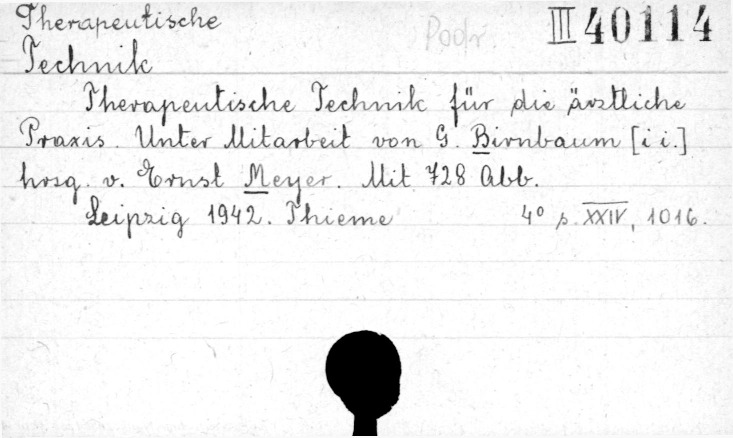 Therapeutische
Podr.
III 40114
Technik
Therapeutische Technik für die ärztliche
Praxis. Unter Mitarbeit von G. Birnbaum [i i.]
hrsg. v. Ernst Meyer. Mit 728 Abb.
Leipzig 1942. Thieme 4° s. XXIV, 1016.